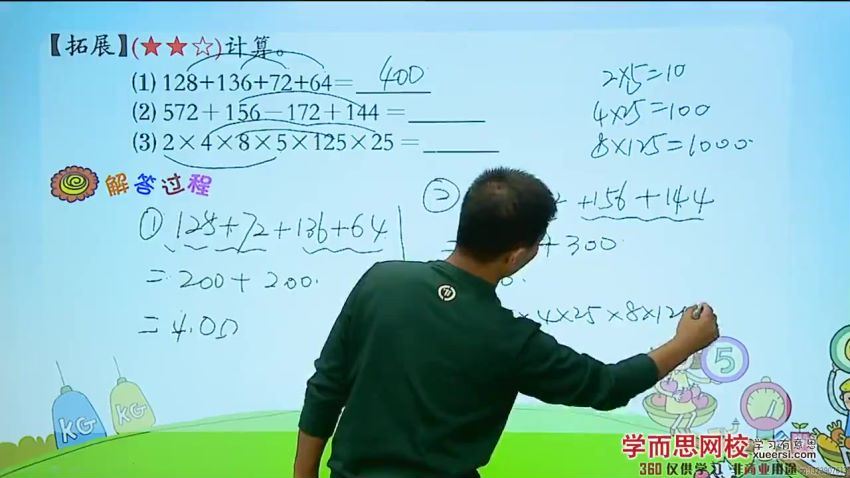 【拓展】(★★☆)计算。
(1) 128+136+72+64= 400
(2) 572+156-172+144=
(3) 2×4×8×5×125×25=
2×5=10
4×25=100
8×125=1000
解答过程
① 128+72+136+64
=200+200
=400
② +156+144
= +300
×4×25×8×12
KG
KG
5
学而思网校 学习有意思
xueersi.com
360 仅供学习 非商业用途